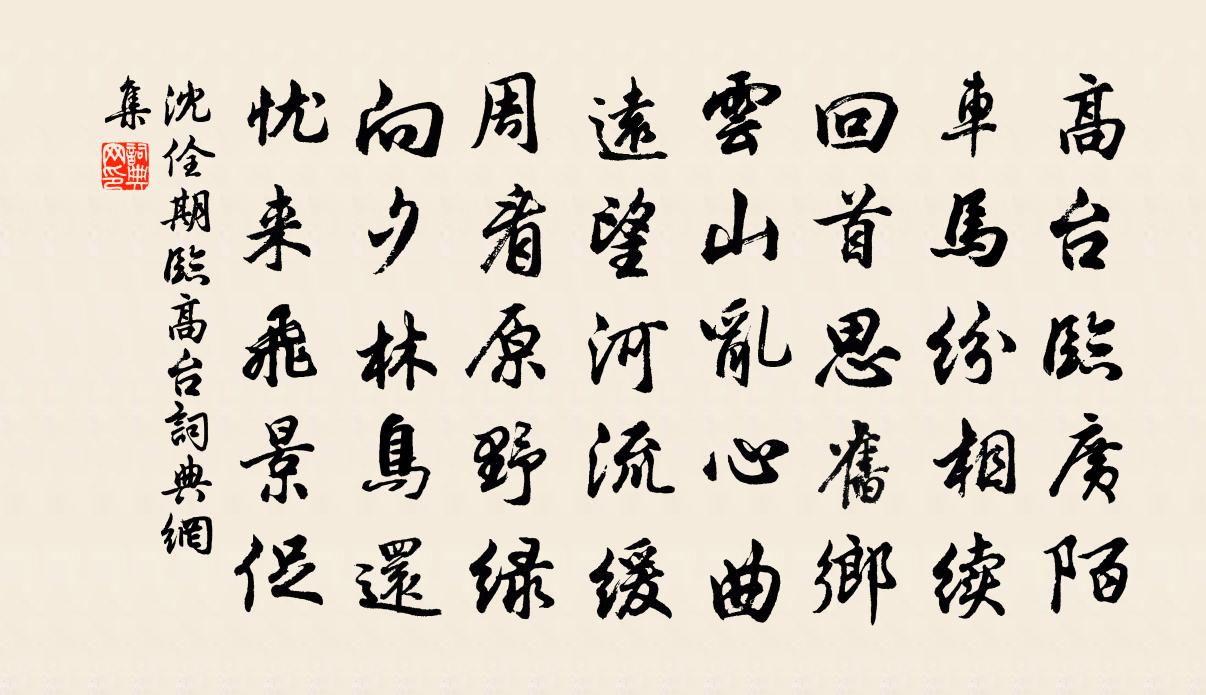 高台臨廣陌
車馬紛相續
回首思舊鄉
雲山亂心曲
遠望河流緩
周看原野绿
向夕林鳥還
忧来飛景促
沈佺期臨高台詞典網
集
詞典網印